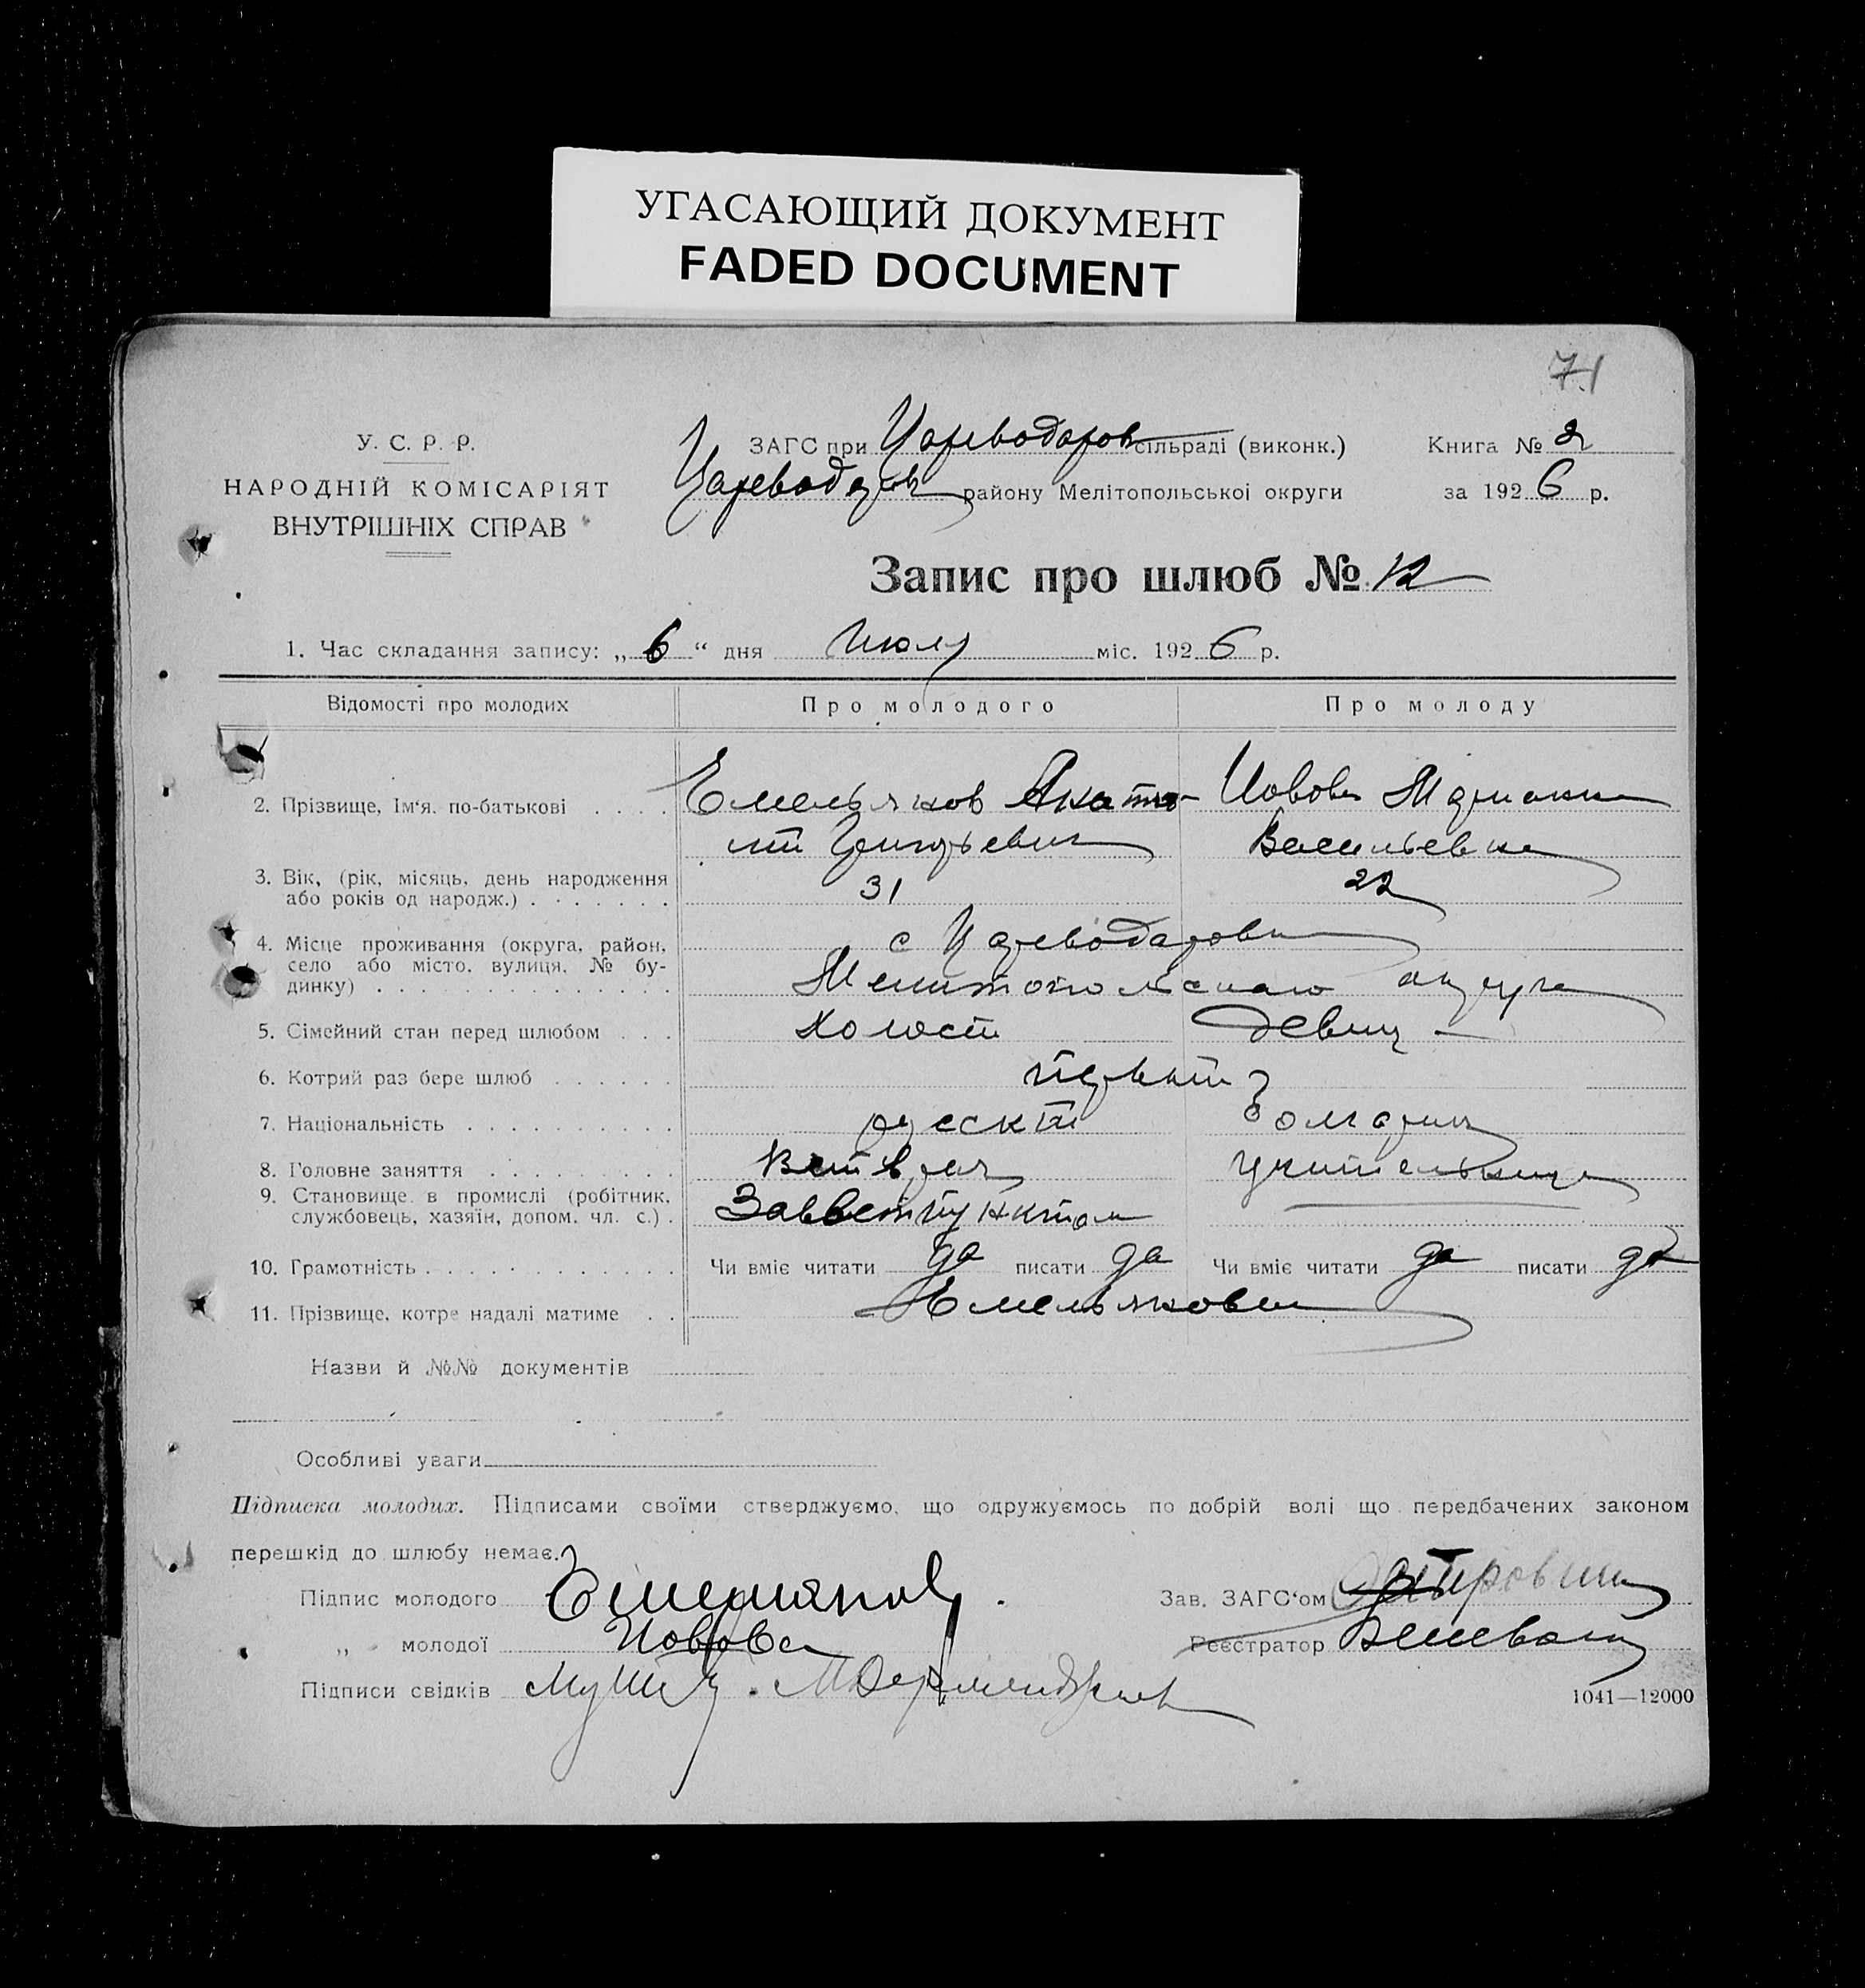 УГАСАЮЩИЙ ДОКУМЕНТ
FADED DOCUMENT
71
У. С. Р. Р.
НАРОДНІЙ КОМІСАРІЯТ
ВНУТРІШНІХ СПРАВ
ЗАГС при Цареводаров сільраді (виконк.) Книга № 2
Цареводаров району Мелітопольської округи за 1926 р.
Запис про шлюб № 12
1. Час складання запису: „ 6 “ дня Июля міс. 1926 р.
Відомості про молодих Про молодого Про молоду
2. Прізвище, Ім'я, по-батькові Емельянов Анато- Иовова Марианна
лий Григорьевич Васильевна
3. Вік, (рік, місяць, день народження або років од народж.) 31 22
4. Місце проживання (округа, район, с Цареводаровка
село або місто, вулиця, № бу-
динку) Мелитопольского округа
5. Сімейний стан перед шлюбом Холост Девиц
6. Котрий раз бере шлюб первый
7. Національність русский болгарка
8. Головне заняття Ветврач учительница
9. Становище в промислі (робітник,
службовець, хазяїн, допом. чл. с.) Замветпунктом
10. Грамотність Чи вміє читати да писати да Чи вміє читати да писати да
11. Прізвище, котре надалі матиме Емельяновы
Назви й №№ документів
Особливі уваги
Підписка молодих. Підписами своїми стверджуємо, що одружуємось по добрій волі що передбачених законом
перешкід до шлюбу немає.
Підпис молодого Емельянов Зав. ЗАГС'ом
„ молодої Иовова Реєстратор
Підписи свідків
1041—12000